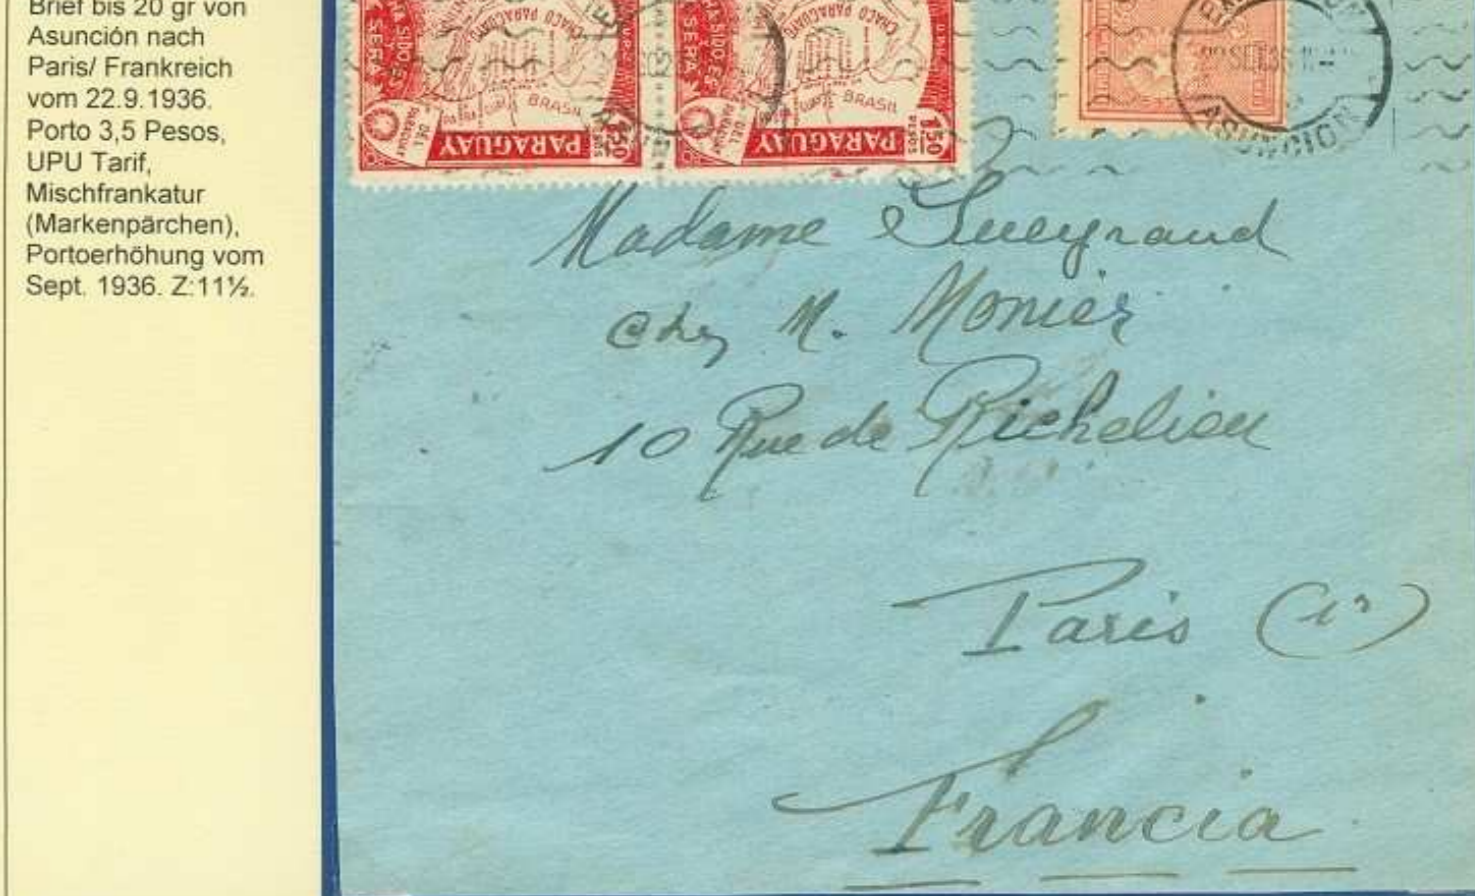 Brief bis 20 gr von
Asunción nach
Paris/ Frankreich
vom 22.9.1936.
Porto 3,5 Pesos,
UPU Tarif,
Mischfrankatur
(Markenpärchen),
Portoerhöhung vom
Sept. 1936. Z:11½.
CHACO PARAGUAYO
BRASIL
DEL PARAGUAY
PARAGUAY
1.50 PESOS
CHACO PARAGUAYO
BRASIL
DEL PARAGUAY
PARAGUAY
1.50 PESOS
ASUNCION
Madame Sueyraud
chez M. Monier
10 Rue de Richelieu
Paris (1r)
Francia